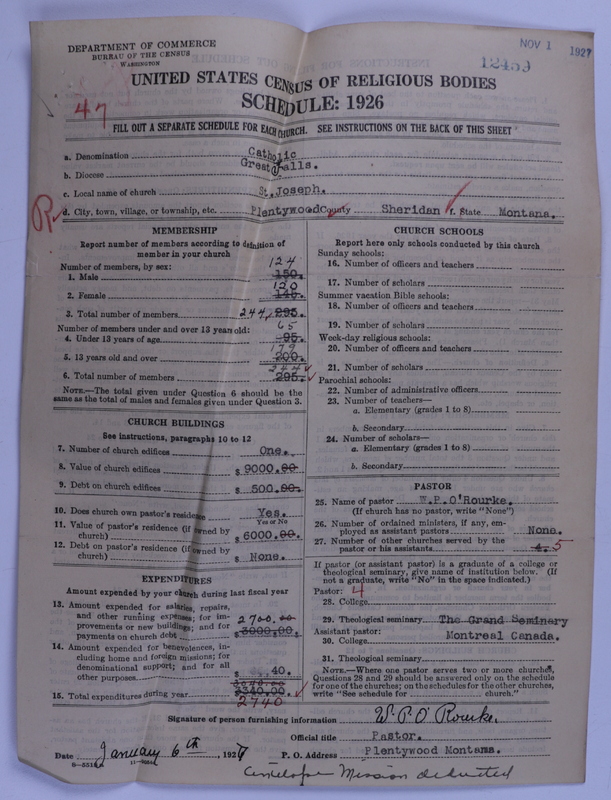 NOV 1 1927
12459
DEPARTMENT OF COMMERCE
BUREAU OF THE CENSUS
WASHINGTON
UNITED STATES CENSUS OF RELIGIOUS BODIES
SCHEDULE: 1926
47
FILL OUT A SEPARATE SCHEDULE FOR EACH CHURCH. SEE INSTRUCTIONS ON THE BACK OF THIS SHEET
a. Denomination Catholic
b. Diocese Great Falls.
c. Local name of church St. Joseph.
R
d. City, town, village, or township, etc. Plentywood County Sheridan f. State Montana.
MEMBERSHIP
Report number of members according to definition of
member in your church
Number of members, by sex:
124
1. Male 150.
120
2. Female 145.
3. Total number of members 244 295.
Number of members under and over 13 years old:
65
4. Under 13 years of age 95.
179
5. 13 years old and over 200.
244
6. Total number of members 295.
NOTE.—The total given under Question 6 should be the
same as the total of males and females given under Question 3.
CHURCH BUILDINGS
See instructions, paragraphs 10 to 12
7. Number of church edifices One.
8. Value of church edifices $ 9000.00.
9. Debt on church edifices $ 500.00.
10. Does church own pastor's residence Yes.
Yes or No
11. Value of pastor's residence (if owned by
church) $ 6000.00.
12. Debt on pastor's residence (if owned by
church) $ None.
EXPENDITURES
Amount expended by your church during last fiscal year
13. Amount expended for salaries, repairs,
and other running expenses; for im-
provements or new buildings; and for
payments on church debt 2700.00 $ 3000.00.
14. Amount expended for benevolences, in-
cluding home and foreign missions; for
denominational support; and for all
other purposes $ 40.
15. Total expenditures during year $ 3340.00.
2740
CHURCH SCHOOLS
Report here only schools conducted by this church
Sunday schools:
16. Number of officers and teachers
17. Number of scholars
Summer vacation Bible schools:
18. Number of officers and teachers
19. Number of scholars
Week-day religious schools:
20. Number of officers and teachers
21. Number of scholars
Parochial schools:
22. Number of administrative officers
23. Number of teachers—
a. Elementary (grades 1 to 8)
b. Secondary
24. Number of scholars—
a. Elementary (grades 1 to 8)
b. Secondary
PASTOR
25. Name of pastor W.P.O'Rourke.
(If church has no pastor, write "None")
26. Number of ordained ministers, if any, em-
ployed as assistant pastors None.
27. Number of other churches served by the
pastor or his assistants 4. 5
If pastor (or assistant pastor) is a graduate of a college or
theological seminary, give name of institution below. (If
not a graduate, write "No" in the space indicated.)
Pastor: 4
28. College
29. Theological seminary The Grand Seminary
Assistant pastor: Montreal Canada.
30. College
31. Theological seminary
NOTE.—Where one pastor serves two or more churches,
Questions 28 and 29 should be answered only on the schedule
for one of the churches; on the schedules for the other churches,
write "See schedule for church."
Signature of person furnishing information W.P.O'Rourke.
Official title Pastor.
Date January 6th, 1927 P. O. Address Plentywood Montana.
Mission deducted